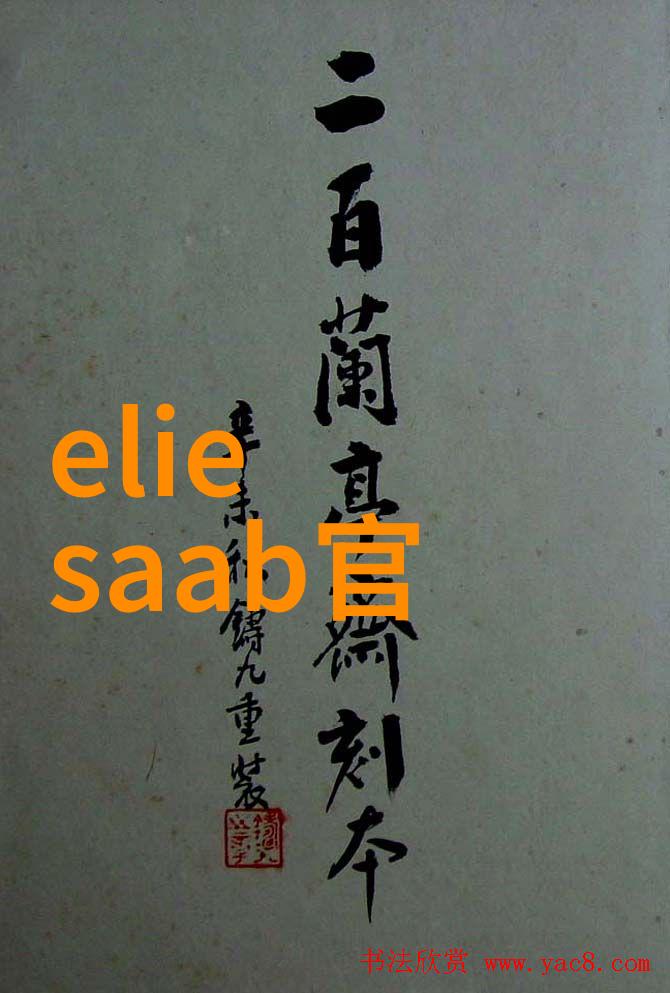 二百蘭亭齋刻本
辛未秋鑄九重裝
elie
saab官
书法欣赏 www.yac8.com